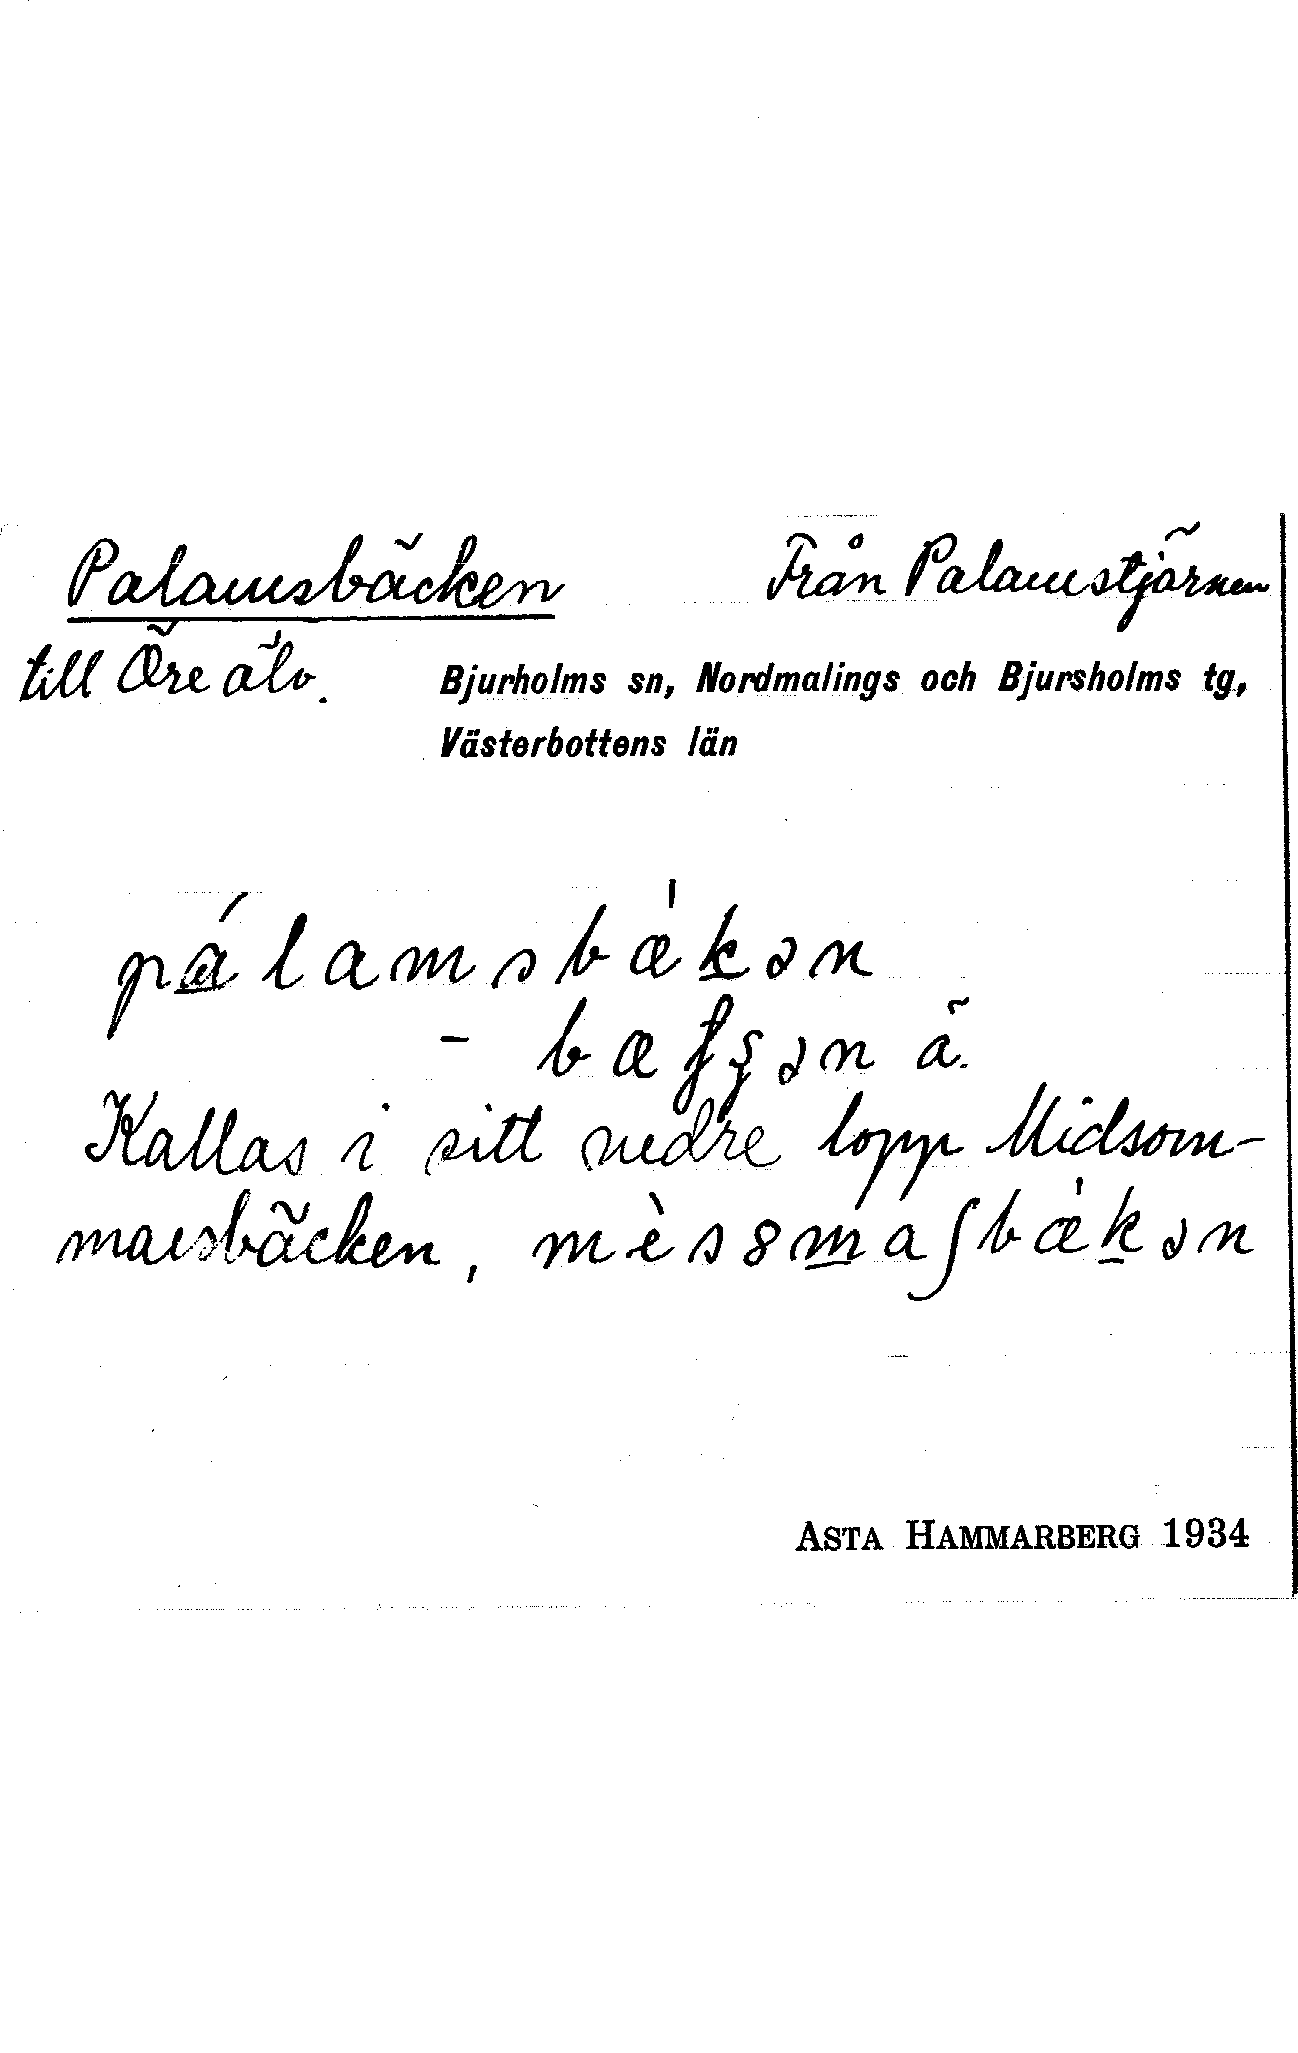 Palamsbäcken Från Palamstjärnen
till Öre älv.
Bjurholms sn, Nordmalings och Bjursholms tg,
Västerbottens län
pá̲lamsbæ̀k̲ən
- bæʄʂən ä.
Kallas i sitt nedre lopp Midsom-
marsbäcken, mèssȣm̲aʃbæ̀k̲ən
ASTA HAMMARBERG 1934